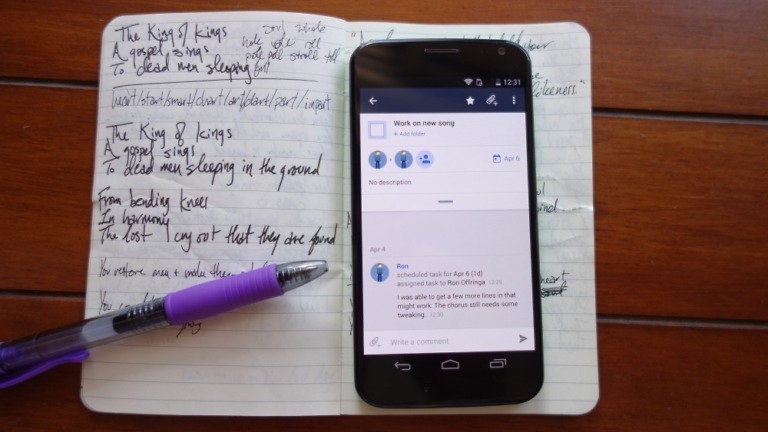 The King of kings
A gospel sings
To dead men sleeping
soul whole
hole roll
pole poll stroll toll
heart/start/smart/chart/art/dart/part/impart
The King of kings
A gospel sings
To dead men sleeping in the ground
From bending knees
In harmony
The lost I cry out that they are found
You restore men + make
You
your
likeness."
heart
12:31
Work on new song
+ Add folder
Apr 6
No description
Apr 4
Ron
scheduled task for Apr 6 (1d)
assigned task to Ron Offringa 12:30
I was able to get a few more lines in that
might work. The chorus still needs some
tweaking. 12:30
Write a comment